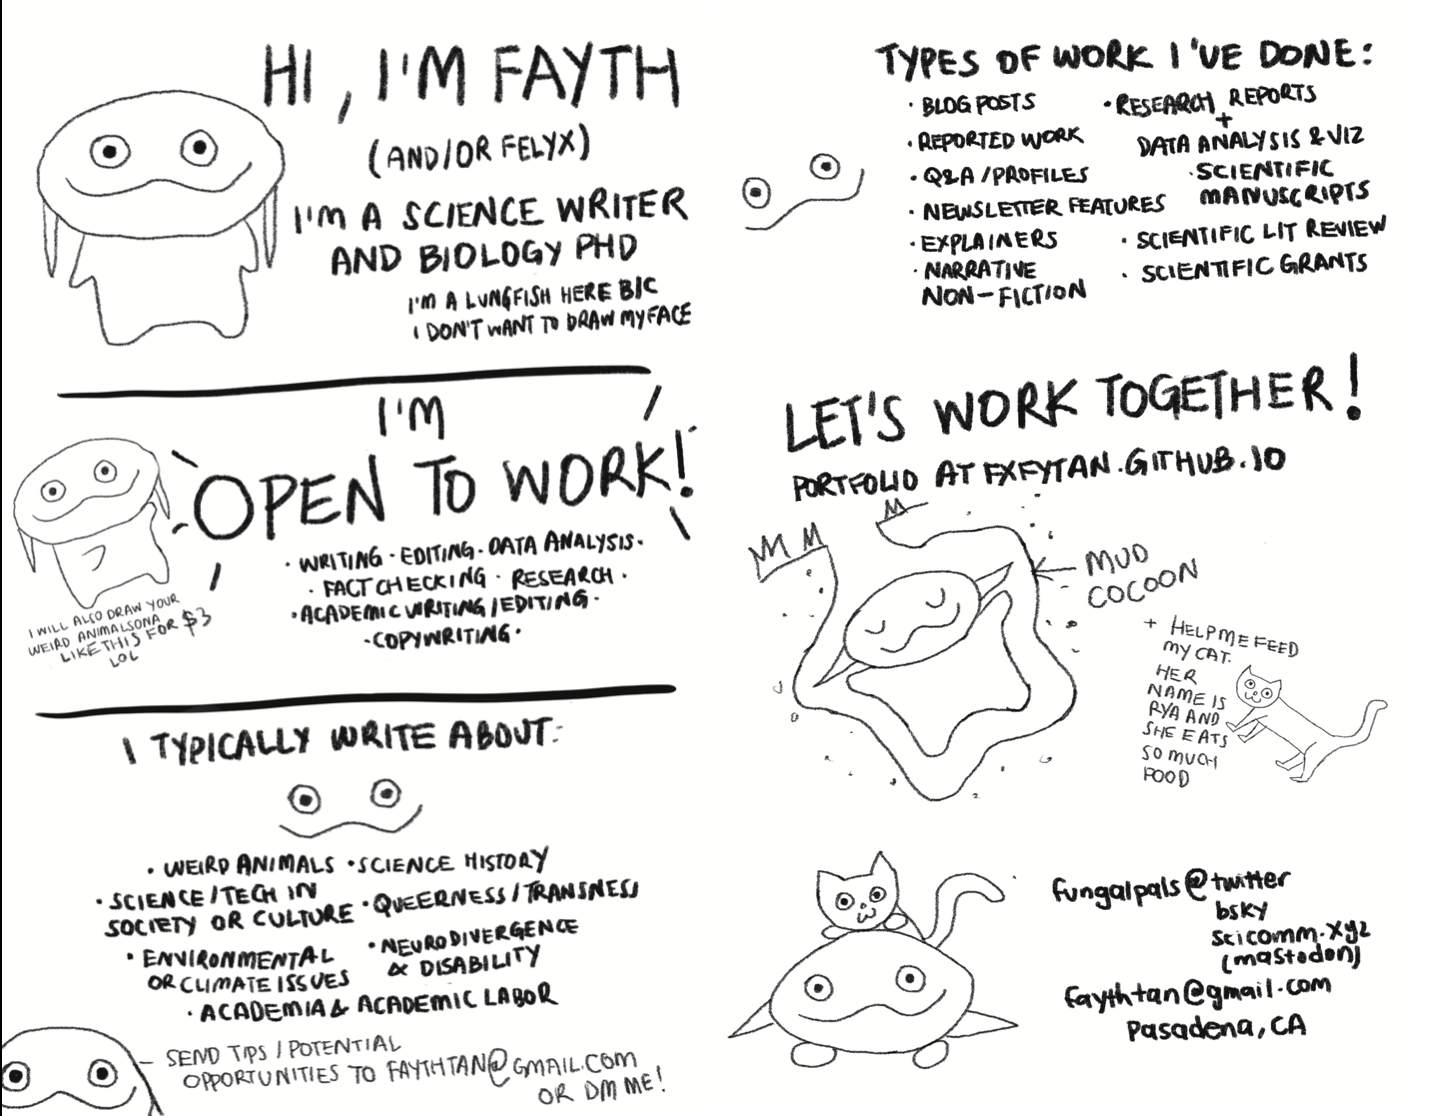 HI, I'M FAYTH
(AND/OR FELYX)
I'M A SCIENCE WRITER
AND BIOLOGY PHD
I'M A LUNGFISH HERE B/C
I DON'T WANT TO DRAW MY FACE
I'M
OPEN TO WORK!
· WRITING · EDITING · DATA ANALYSIS ·
· FACT CHECKING · RESEARCH ·
· ACADEMIC WRITING/EDITING ·
· COPYWRITING ·
I WILL ALSO DRAW YOUR
WEIRD ANIMALSONA
LIKE THIS FOR $3
LOL
I TYPICALLY WRITE ABOUT:
· WEIRD ANIMALS · SCIENCE HISTORY
· SCIENCE/TECH IN
SOCIETY OR CULTURE
· QUEERNESS/TRANSNESS
· ENVIRONMENTAL
OR CLIMATE ISSUES
· NEURODIVERGENCE
& DISABILITY
· ACADEMIA & ACADEMIC LABOR
SEND TIPS/POTENTIAL
OPPORTUNITIES TO FAYTHTAN@GMAIL.COM
OR DM ME!
TYPES OF WORK I'VE DONE:
· BLOG POSTS
· REPORTED WORK
· Q&A/PROFILES
· NEWSLETTER FEATURES
· EXPLAINERS
· NARRATIVE
NON-FICTION
· RESEARCH REPORTS
+
DATA ANALYSIS & VIZ
· SCIENTIFIC
MANUSCRIPTS
· SCIENTIFIC LIT REVIEW
· SCIENTIFIC GRANTS
LET'S WORK TOGETHER!
PORTFOLIO AT FXFYTAN.GITHUB.IO
MUD
COCOON
+ HELP ME FEED
MY CAT.
HER
NAME IS
RYA AND
SHE EATS
SO MUCH
FOOD
fungalpals@twitter
bsky
scicomm.xyz
(mastodon)
faythtan@gmail.com
Pasadena, CA